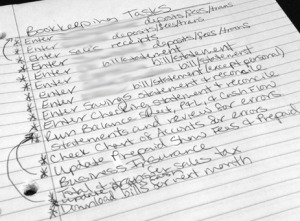 Bookkeeping Tasks
* Enter deposits/fees/trans
* Enter deposits/fees/trans
* Enter sales receipts
* Enter deposits/fees/trans
* Enter bill/statement
* Enter bill/statement
* Enter bill/statement
* Enter bill/statement (except personal)
* Enter Savings statement & reconcile
* Enter Checking statement & reconcile
* Run Balance Sheet, P+L, & Cash Flow
Statements and review for errors.
* Check Chart of Accounts for errors
* Update Prepaid Show Fees & Prepaid
Business Insurance
* sales tax
* Download bills for next month